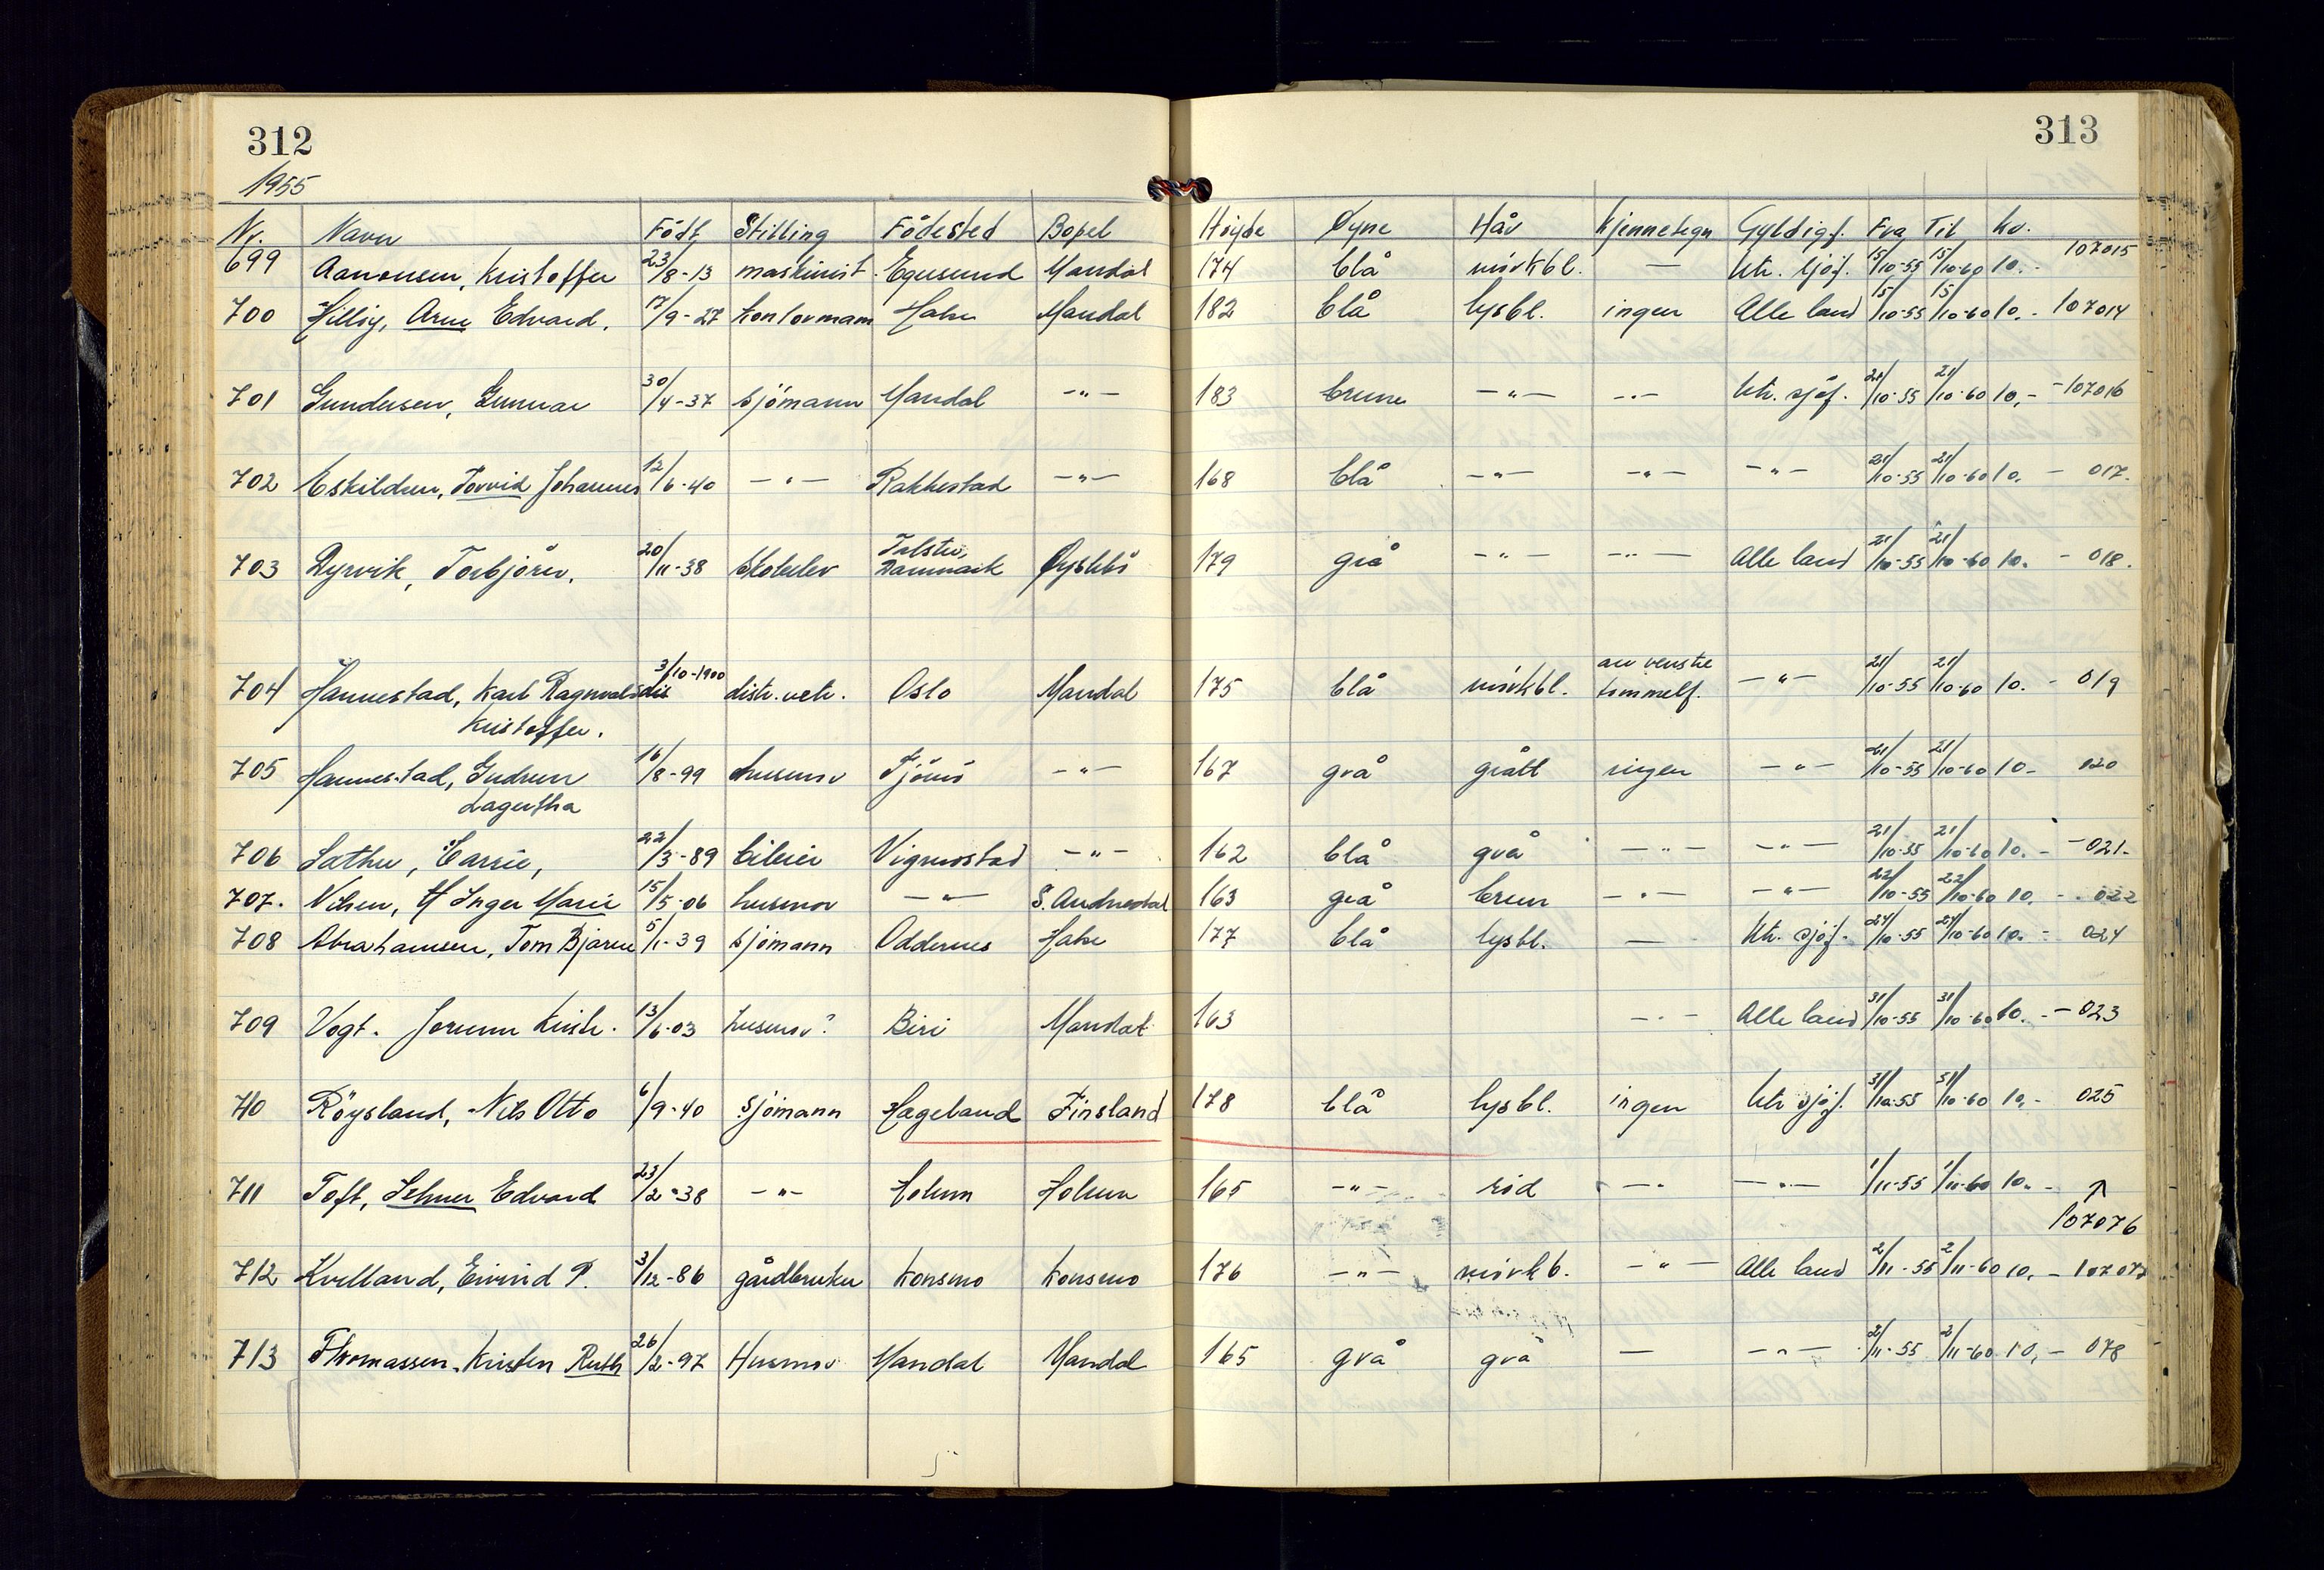 312
313
1955
Nr. Navn Födt Stilling Födested Bopel Höyde Øyne Hår Kjennetegn Gyldigf. Fra Til Kr.
699 Aanonsen, Kristoffer 23/8-13 maskinist Egersund Mandal 174 blå mörkbl. — Utr. sjöf. 15/10-55 15/10-60 10.- 107015
700 Hillig, Arne Edvard. 17/9-27 kontormann Halse Mandal 182 blå lysbl. ingen Alle land 15/10-55 15/10-60 10.- 107014
701 Gundersen, Gunnar 30/4-37 sjömann Mandal -"- 183 brune -"- -"- Utr. sjöf. 21/10-55 21/10-60 10,- -107016
702 Eskildsen, Torvid Johannes 12/6-40 -"- Rakkestad -"- 168 blå -"- -"- -"- 21/10-55 21/10-60 10.- 017.
703 Dyrvik, Torbjörn. 20/11-38 skoleelev Danmark Øyslebö 179 grå -"- -"- Alle land 21/10-55 21/10-60 10.- 018.
704 Hannestad, Karl Ragnvald 3/10-1900 distr.vetr. Oslo Mandal 175 blå mörkbl. arr venstre tommelf. -"- 21/10-55 21/10-60 10.- 019
Kristoffer.
705 Hannestad, Gudrun 16/8-99 husmor Tjömö -"- 167 grå grått ingen -"- 21/10-55 21/10-60 10- 020
Lagertha
706 Carrie, 22/3-89 bileier Vigmostad -"- 162 blå grå -"- -"- 21/10-55 21/10-60 10.- -021-
707. Nilsen, Inger Marie 15/5-06 husmor -"- S. Audnedal 163 grå brun -"- -"- 22/10-55 22/10-60 10.- 022
708 Abrahamsen, Tom Bjarne 5/1-39 sjömann Oddernes Halse 177 blå lysbl. — Utr. sjöf. 24/10-55 24/10-60 10.- 024
709 Vogt. Jorunn Kristr. 13/6-03 husmor? Biri Mandal 163 -"- Alle land 31/10-55 31/10-60 10.- -023
710 Röysland, Nils Otto 6/9-40 sjömann Hægeland Finsland 178 blå lysbl. ingen Utr sjöf. 31/10-55 31/10-60 10,- 025
711 Toft, Selmer Edvard 23/2-38 -"- Holum Holum 165 -"- röd -"- -"- 1/11-55 1/11-60 10.- ↑
107076
712 Kvelland, Eivind P. 3/12-86 gårdbruker Konsmo Konsmo 176 -"- mörkb. -"- Alle land 2/11-55 2/11-60 10,- 107077
713 Thomassen, Kirsten Ruth 26/2-97 Husmor Mandal Mandal 165 grå grå — -"- 2/11-55 2/11-60 10,- 078